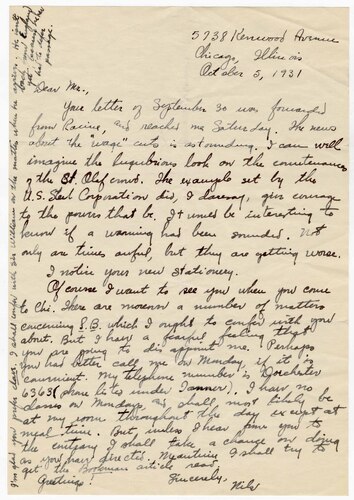 5738 Kenwood Avenue
Chicago, Illinois
October 5, 1931
Dear Mr.,
Your letter of September 30 was forwarded
from Racine, and reached me Saturday. The news
about the "wage" cuts is astounding. I can well
imagine the lugubrious look on the countenances
of the St. Olaf crowd. The example set by the
U.S. Steel Corporation did, I daresay, give courage
to the powers that be. It would be interesting to
know if a warning had been sounded. Not
only are times awful, but they are getting worse.
I notice your new stationery.
Of course I want to see you when you come
to Chi. There are moreover a number of matters
concerning P.B. which I ought to confer with you
about. But I have a fearful feeling that
you are going to disappoint me. Perhaps
you had better call me on Monday, if it is
convenient. My telephone number is Dorchester
6363 (phone listed under Tanner). I have no
classes on Mondays and shall most likely be
at my room throughout the day except at
meal time. But, unless I hear from you to
the contrary I shall take a chance on doing
as you have directed. Meantime I shall try to
get the Bookman article read.
Greetings! Sincerely,
I shall confer with the Williams on the matter when he